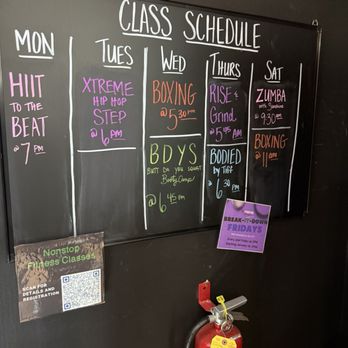 CLASS SCHEDULE
MON
HIIT
TO THE
BEAT
@ 7 PM
TUES
XTREME
HIP HOP
STEP
@ 6 PM
WED
BOXING
@ 5:30 PM
BDYS
BUTT DA YOU SQUAT
Booty Camp
@ 6:45 PM
THURS
RISE &
Grind
@ 5:45 AM
BODIED
by Tiff
@ 6:30 PM
SAT
ZUMBA
with
@ 9:30 AM
BOXING
@ 11 AM
Nonstop
Fitness Classes
SCAN FOR
DETAILS AND
REGISTRATION
BREAK-IT-DOWN
FRIDAYS